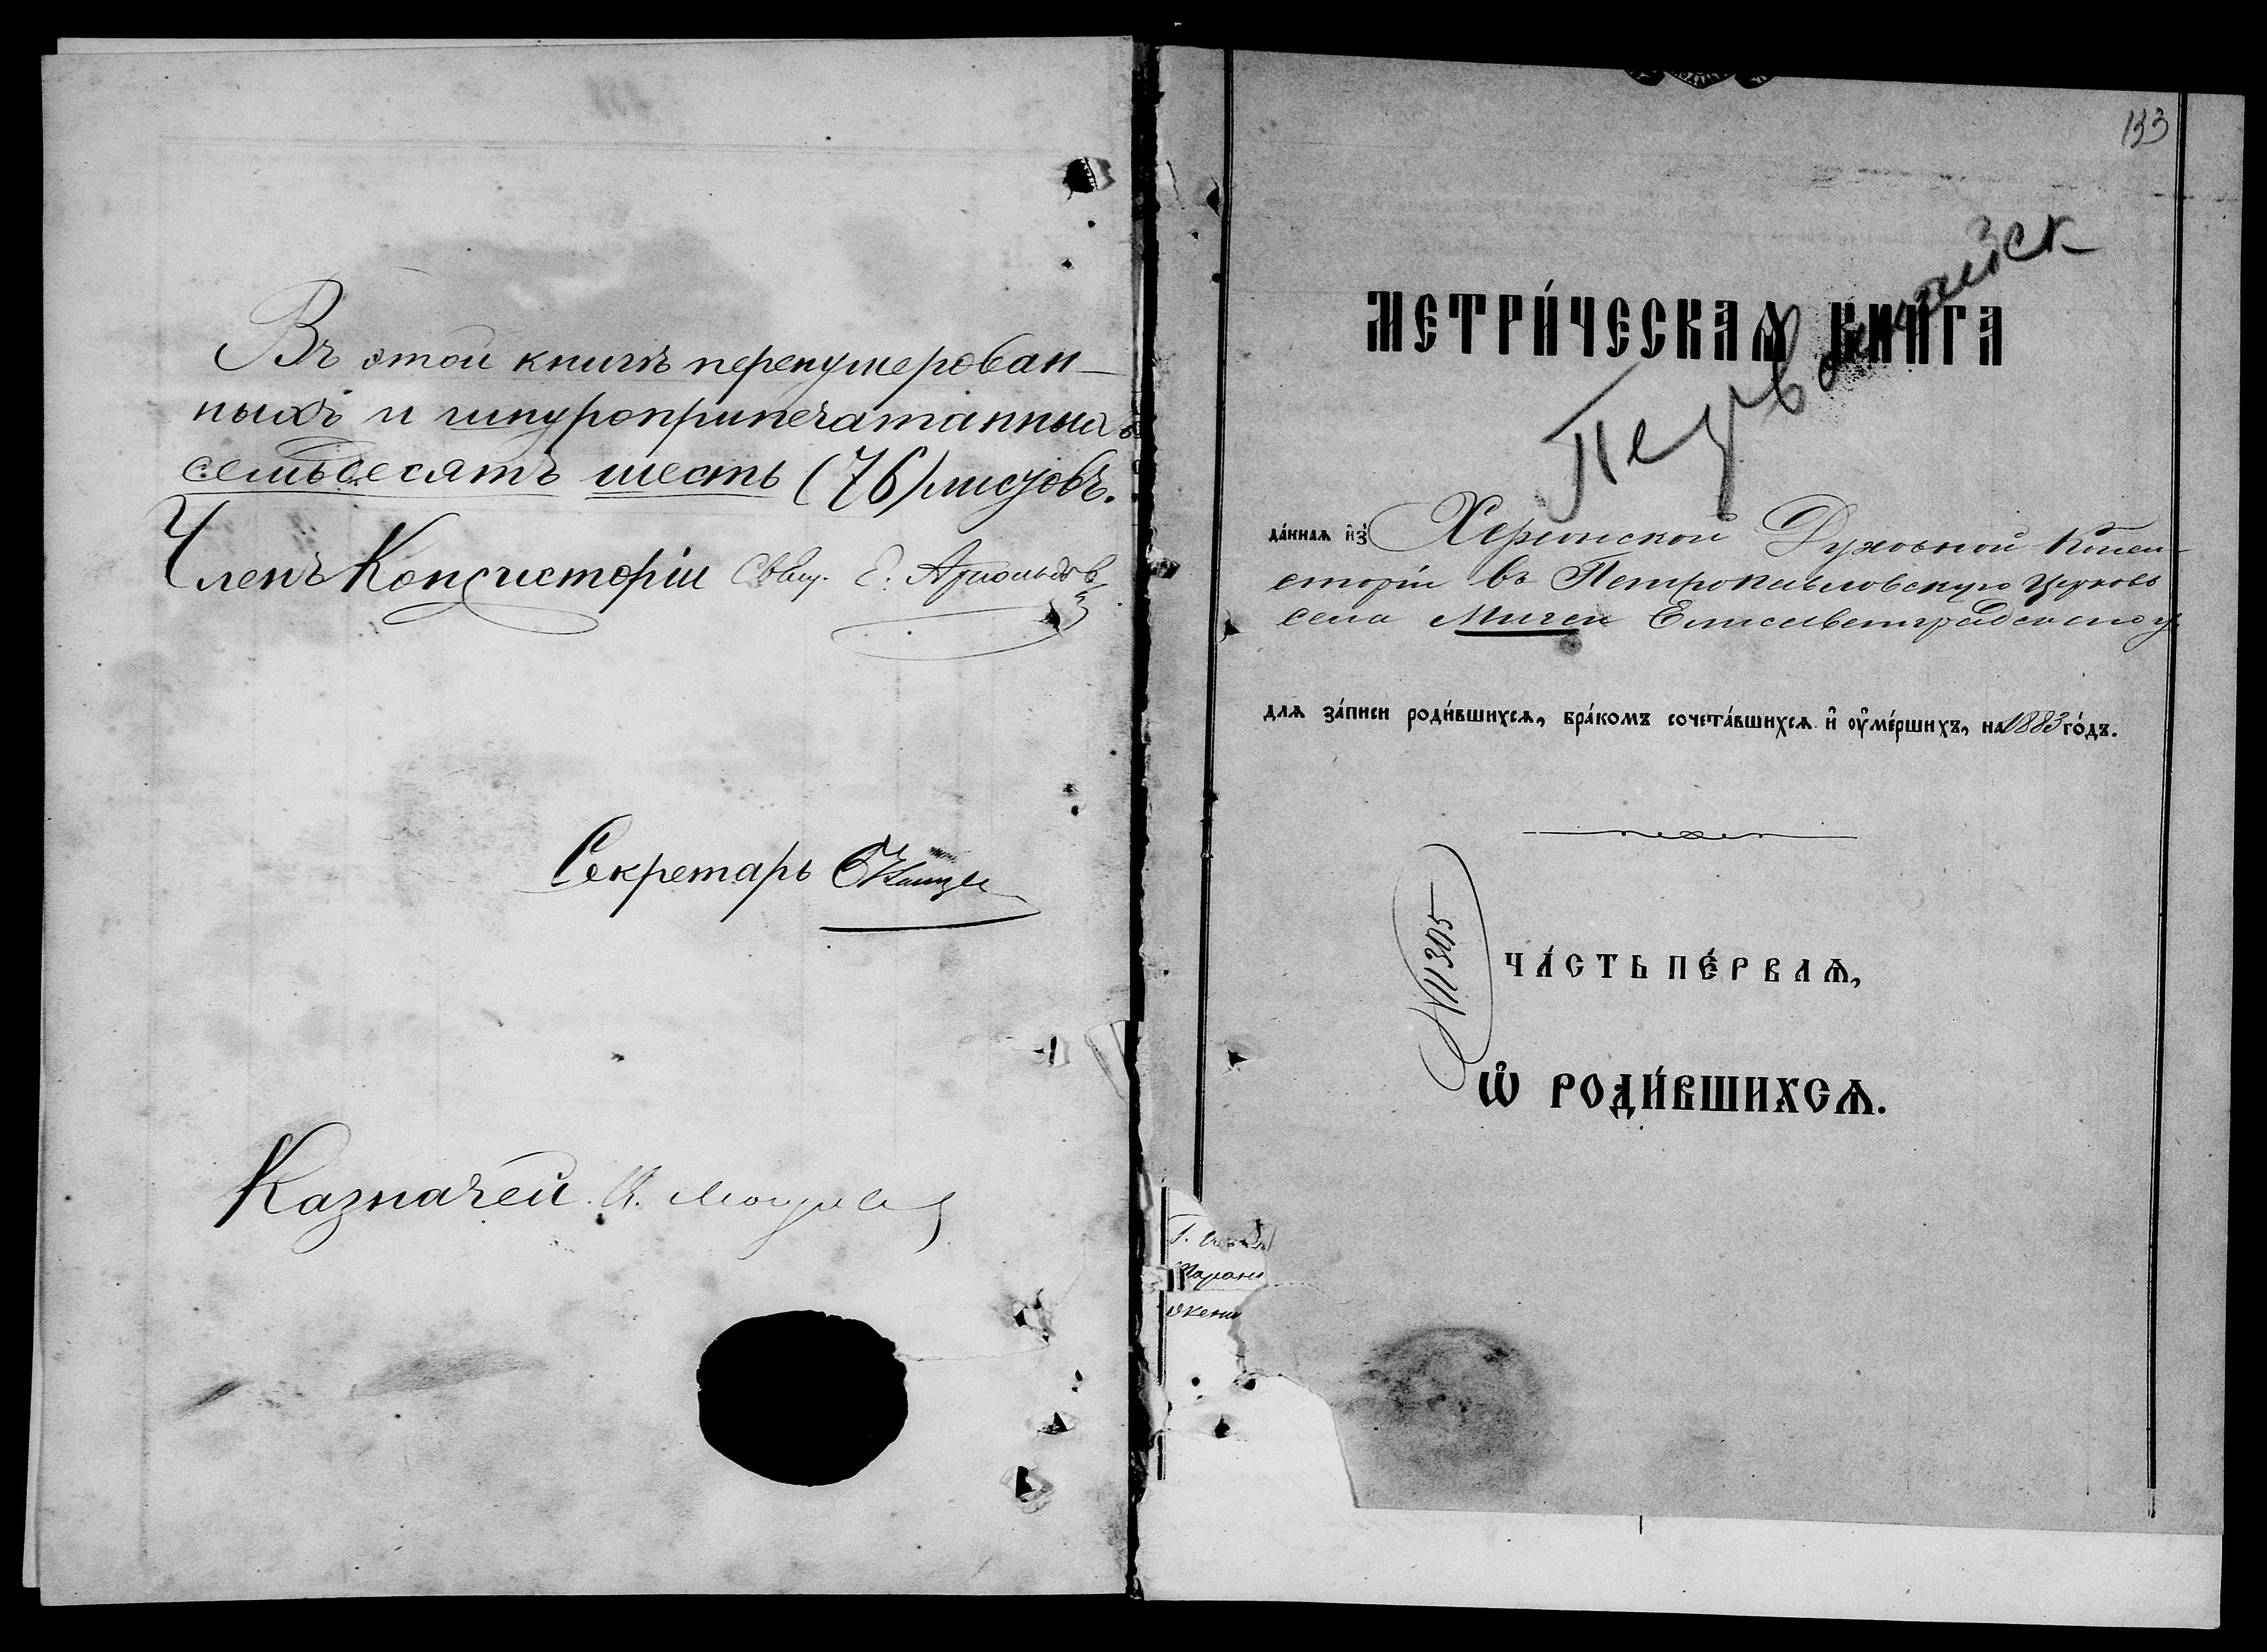 Въ этой книгѣ перенумерован-
ныхъ и шнуроприпечатанныхъ
семьдесятъ шесть (76) листовъ.
Членъ Консисторіи Свящ. С. Арнольдовъ
Секретарь
Казначей
133
МЕТРИ́ЧЕСКАѦ КНИ́ГА
Первомайск
да́ннаѧ и҆з̾ Херсонской Духовной Конси-
сторіи въ Петропавловскую церковь
села Мигеи Елисаветградскаго у.
длѧ за́писи роди́вшихсѧ, бра́комъ сочета́вшихсѧ и҆ ᲂу҆ме́ршихъ, на 1883 го́дъ.
№ 11305
ЧА́СТЬ ПЕ́РВАѦ,
Ѡ҆ РОДИ́ВШИХСѦ.
жени